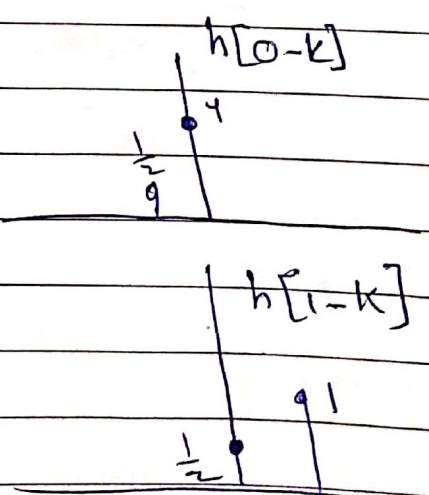 h[0-k]
1
1/2
h[1-k]
1
1/2